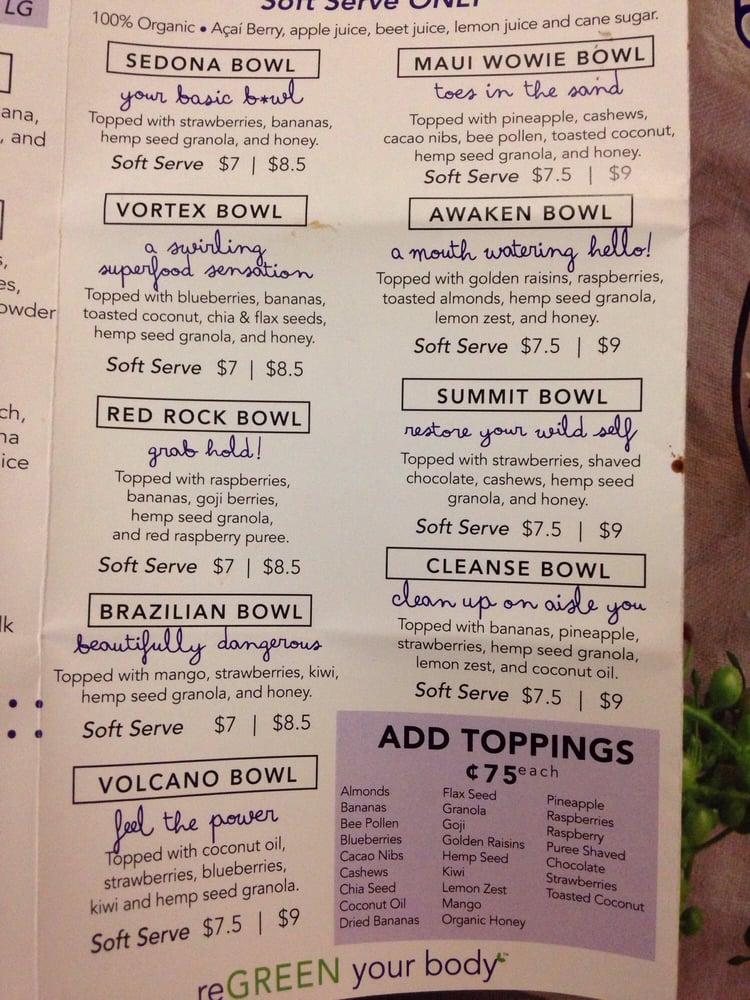 LG
Soft Serve ONLY
100% Organic • Açaí Berry, apple juice, beet juice, lemon juice and cane sugar.
SEDONA BOWL
your basic b*wl
Topped with strawberries, bananas,
hemp seed granola, and honey.
Soft Serve $7 | $8.5
VORTEX BOWL
a swirling
superfood sensation
Topped with blueberries, bananas,
toasted coconut, chia & flax seeds,
hemp seed granola, and honey.
Soft Serve $7 | $8.5
RED ROCK BOWL
grab hold!
Topped with raspberries,
bananas, goji berries,
hemp seed granola,
and red raspberry puree.
Soft Serve $7 | $8.5
BRAZILIAN BOWL
beautifully dangerous
Topped with mango, strawberries, kiwi,
hemp seed granola, and honey.
Soft Serve $7 | $8.5
VOLCANO BOWL
feel the power
Topped with coconut oil,
strawberries, blueberries,
kiwi and hemp seed granola.
Soft Serve $7.5 | $9
MAUI WOWIE BOWL
toes in the sand
Topped with pineapple, cashews,
cacao nibs, bee pollen, toasted coconut,
hemp seed granola, and honey.
Soft Serve $7.5 | $9
AWAKEN BOWL
a mouth watering hello!
Topped with golden raisins, raspberries,
toasted almonds, hemp seed granola,
lemon zest, and honey.
Soft Serve $7.5 | $9
SUMMIT BOWL
restore your wild self
Topped with strawberries, shaved
chocolate, cashews, hemp seed
granola, and honey.
Soft Serve $7.5 | $9
CLEANSE BOWL
clean up on aisle you
Topped with bananas, pineapple,
strawberries, hemp seed granola,
lemon zest, and coconut oil.
Soft Serve $7.5 | $9
ADD TOPPINGS
¢75 each
Almonds
Bananas
Bee Pollen
Blueberries
Cacao Nibs
Cashews
Chia Seed
Coconut Oil
Dried Bananas
Flax Seed
Granola
Goji
Golden Raisins
Hemp Seed
Kiwi
Lemon Zest
Mango
Organic Honey
Pineapple
Raspberries
Raspberry
Puree Shaved
Chocolate
Strawberries
Toasted Coconut
reGREEN your body